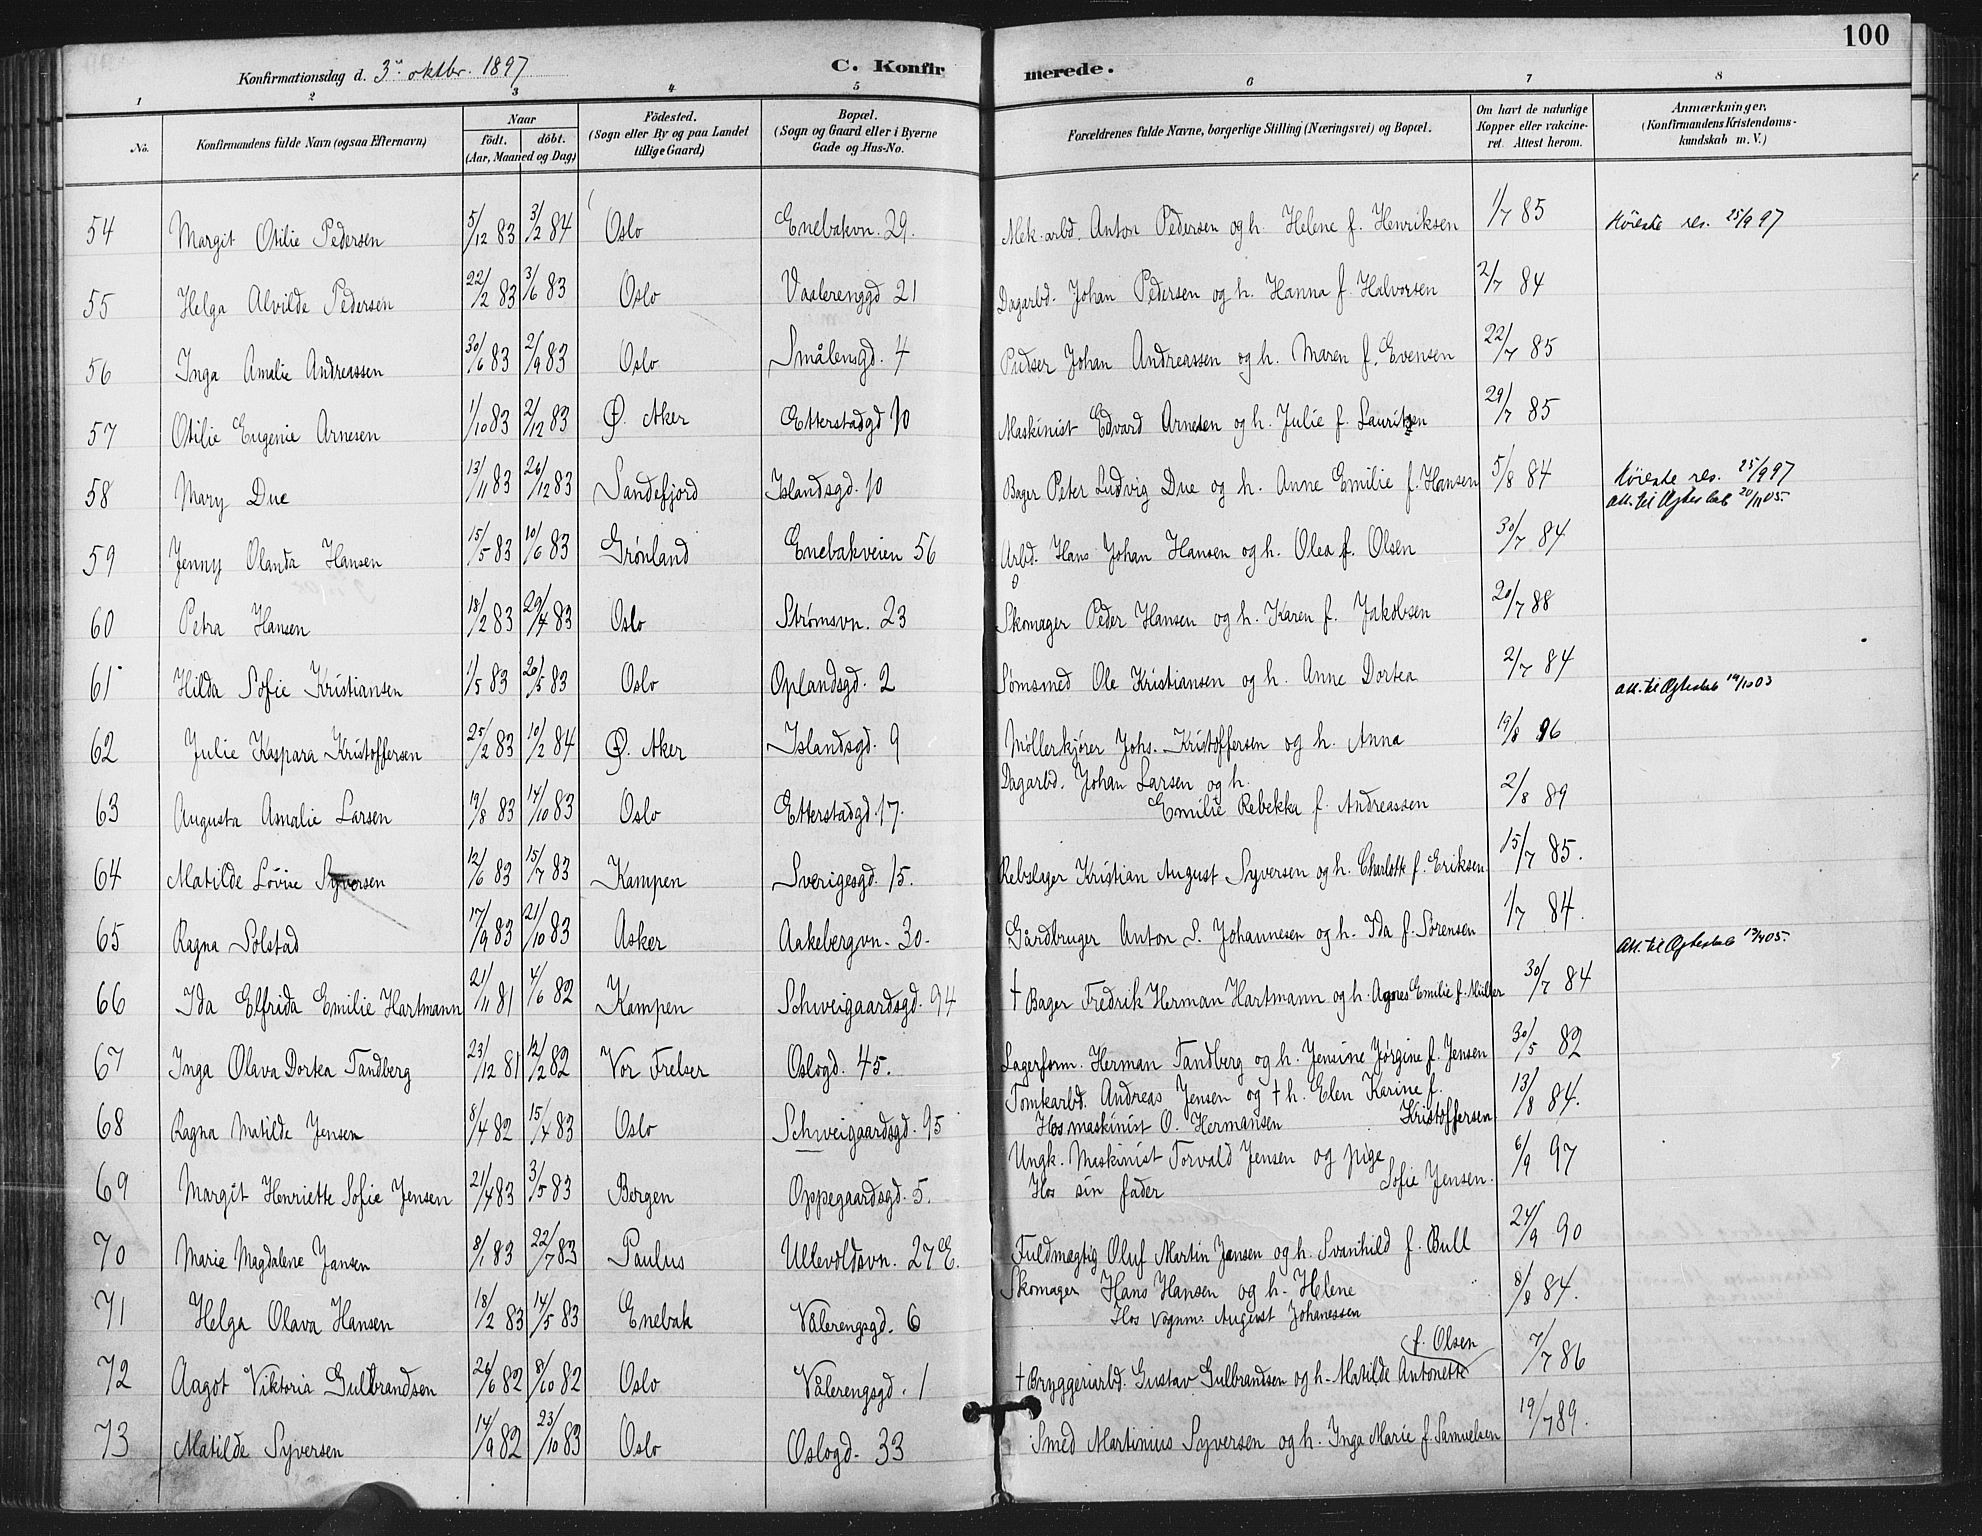 100
Konfirmationsdag d. 3de oktbr. 1897 C. Konfirmerede.
1 2 3 4 5 6 7 8
No. Konfirmandens fulde Navn (ogsaa Efternavn) Naar født. døbt. (Aar, Maaned og Dag) Fødested. (Sogn eller By og paa Landet tillige Gaard) Bopæl. (Sogn og Gaard eller i Byerne Gade og Hus-No. Forældrenes fulde Navne, borgerlige Stilling (Næringsvei) og Bopæl. Om havt de naturlige Kopper eller vakcineret. Attest herom. Anmærkninger. (Konfirmandens Kristendomskundskab m. V.)
54 Margit Otilie Pedersen 5/12 83 3/2 84 Oslo Enebakvn. 29. Mek. arbd. Anton Pedersen og h. Helene f. Henriksen 1/7 85 Høieste res. 25/9 97
55 Helga Alvilde Pedersen 22/2 83 3/6 83 Oslo Vaalerenggd 21 Dagarbd. Johan Pedersen og h. Hanna f. Halvorsen 2/7 84
56 Inga Amalie Andreassen 30/6 83 2/9 83 Oslo Smålensgd. 4 Pudser Johan Andreassen og h. Maren f. Evensen 22/7 85
57 Otilie Eugenie Arnesen 1/10 83 2/12 83 Ø. Aker Etterstadgd 10 Maskinist Edvard Arnesen og h. Julie f. Lauritzen 29/7 85
58 Mary Due 13/11 83 26/12 83 Sandefjord Islandsgd. 10 Bager Peter Ludvig Due og h. Anne Emilie f. Hansen 5/8 84 Høieste res. 25/9 97
att. til Ægteskab 20/11 05.
59 Jenny Olanda Hansen 15/5 83 10/6 83 Grønland Enebakveien 56 Arbd. Hans Johan Hansen og h. Olea f. Olsen 30/7 84
60 Petra Hansen 18/2 83 29/4 83 Oslo Strømsvn. 23 Skomager Peder Hansen og h. Karen f. Jakobsen 20/7 88
61 Hilda Sofie Kristiansen 1/5 83 20/5 83 Oslo Oplandsgd. 2 Sømsmed Ole Kristiansen og h. Anne Dortea 2/7 84 att. til Ægteskab 19/10 03
62 Julie Kaspara Kristoffersen 25/2 83 10/2 84 Ø. Aker Islandsgd. 9 Møllerkjører Johs. Kristoffersen og h. Anna 19/8 96
63 Augusta Amalie Larsen 19/8 83 14/10 83 Oslo Etterstadgd. 17. Dagarbd. Johan Larsen og h.
Emilie Rebekka f. Andreassen 2/8 89
64 Matilde Lovise Syversen 12/6 83 15/7 83 Kampen Sverigesgd. 15. Rebslager Kristian August Syversen og h. Charlotte f. Eriksen. 15/7 85.
65 Ragna Solstad 17/9 83 21/10 83 Asker Aakebergvn. 30. Gårdbruger Anton S. Johannesen og h. Ida f. Sørensen 1/7 84. Att. til Ægteskab 13/4 05.
66 Ida Elfrida Emilie Hartmann 21/11 81 4/6 82 Kampen Schweigaardsgd. 94 † Bager Fredrik Herman Hartmann og h. Agnes Emilie f. Müller 30/7 84
67 Inga Olava Dortea Tandberg 23/12 81 12/2 82 Vor Frelser Oslogd. 45. Lagerform. Herman Tandberg og h. Jensine Jørgine f. Jensen 30/5 82
68 Ragna Matilde Jensen 8/4 82 15/4 83 Oslo Schweigaardsgd. 95 Tomtearbd. Andreas Jensen og † h. Elen Karine f.
Hos maskinist O. Hermansen Kristoffersen 13/8 84.
69 Margit Henriette Sofie Jensen 21/4 83 3/5 83 Bergen Oppegaardsgd. 5. Ungk. Maskinist Torvald Jensen og pige
Hos sin fader Sofie Jensen. 6/9 97
70 Marie Magdalene Jansen 8/1 83 22/7 83 Paulus Ullevoldsvn. 27 E. Fuldmægtig Oluf Martin Jansen og h. Svanhild f. Bull 24/9 90
71 Helga Olava Hansen 18/2 83 14/5 83 Enebak Vålerengsgd. 6 Skomager Hans Hansen og h. Helene
Hos Vognm. August Johanessen 8/8 84.
72 Aagot Viktoria Gulbrandsen 26/6 82 8/10 82 Oslo Vålerengsgd. 1 † Bryggeriarbd. Gustav Gulbrandsen og h. Matilde Antonette f. Olsen 7/7 86
73 Matilde Syversen 14/9 82 23/10 83 Oslo Oslogd. 33 Smed Martinius Syversen og h. Inga Marie f. Samuelsen 19/7 89.